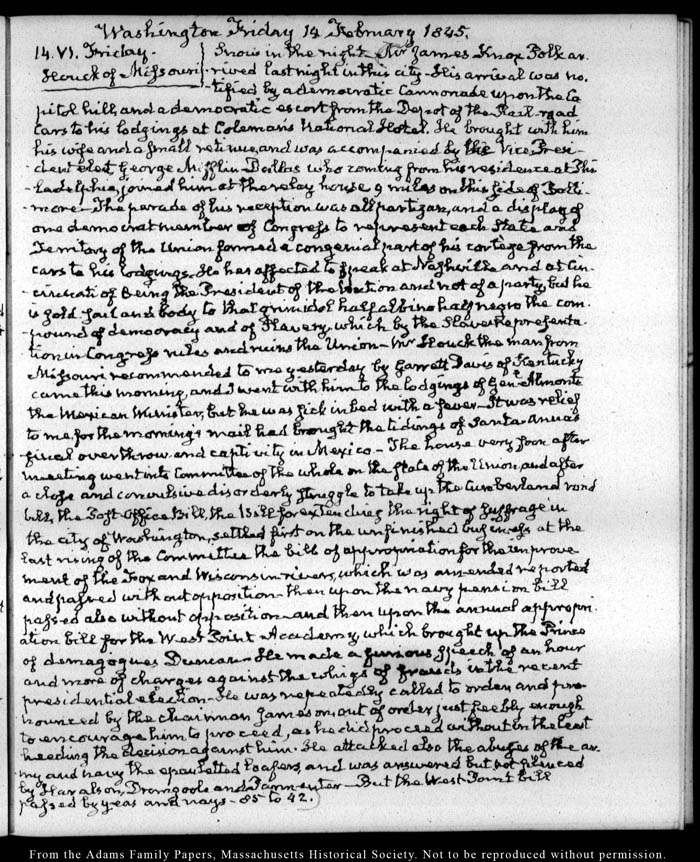 Washington Friday 14 February 1845.
14. VI. Friday. Snow in the night. Mr James Knox Polk ar
Houck of Missouri rived last night in this city - His arrival was no-
tified by a democratic Cannonade upon the Ca
pitol hill, and a democratic escort from the Depot of the Rail-road
Cars to his lodgings at Coleman's National Hotel. He brought with him
his wife and a small retinue, and was accompanied by the Vice Presi-
dent elect George Mifflin Dallas who coming from his residence at Phi-
ladelphia, joined him at the relay house 9 miles on this side of Balti-
more - The parade of his reception was all partizan, and a display of
one democrat member of Congress to represent each State and
Territory of the Union formed a congenial part of his cortege from the
cars to his lodgings. He has affected to speak at Nashville and at Cin-
cinnati of being the President of the Nation and not of a party, but he
is sold soul and body to that grim idol half albino half negro the com-
pound of democracy and of Slavery, which by the Slave Representa-
tion in Congress rules and ruins the Union - Mr Houck the man from
Missouri recommended to me yesterday by Garrett Davis of Kentucky
came this morning, and I went with him to the lodgings of Genl. Almonte
the Mexican Minister, but he was sick in bed with a fever - It was relief
to me, for the morning's mail had brought the tidings of Santa-Anna's
final overthrow and captivity in Mexico - The house very soon after
meeting went into Committee of the whole on the state of the Union, and after
a close and convulsive disorderly struggle to take up the Cumberland road
bill, the Post-Office Bill, the Bill for extending the right of suffrage in
the city of Washington, settled first on the unfinished business at the
last rising of the Committee the bill of appropriation for the improve-
ment of the Fox and Wisconsin rivers, which was amended reported
and passed without opposition - then upon the navy pension bill
passed also without opposition - and then upon the annual appropri-
ation bill for the West Point Academy which brought up the Prince
of demagogues Duncan - He made a furious speech of an hour
and more of charges against the whigs of frauds in the recent
presidential election - He was repeatedly called to order, and pro-
nounced by the chairman Jameson, out of order just feebly enough
to encourage him to proceed, as he did proceed without in the least
heeding the decision against him. He attacked also the abuses of the ar-
my and navy the epauletted loafers, and was answered but not silenced
by Haralson, Dromgoole and Parmenter - But the West Point bill
passed by yeas and nays - 85 to 42.
From the Adams Family Papers, Massachusetts Historical Society. Not to be reproduced without permission.